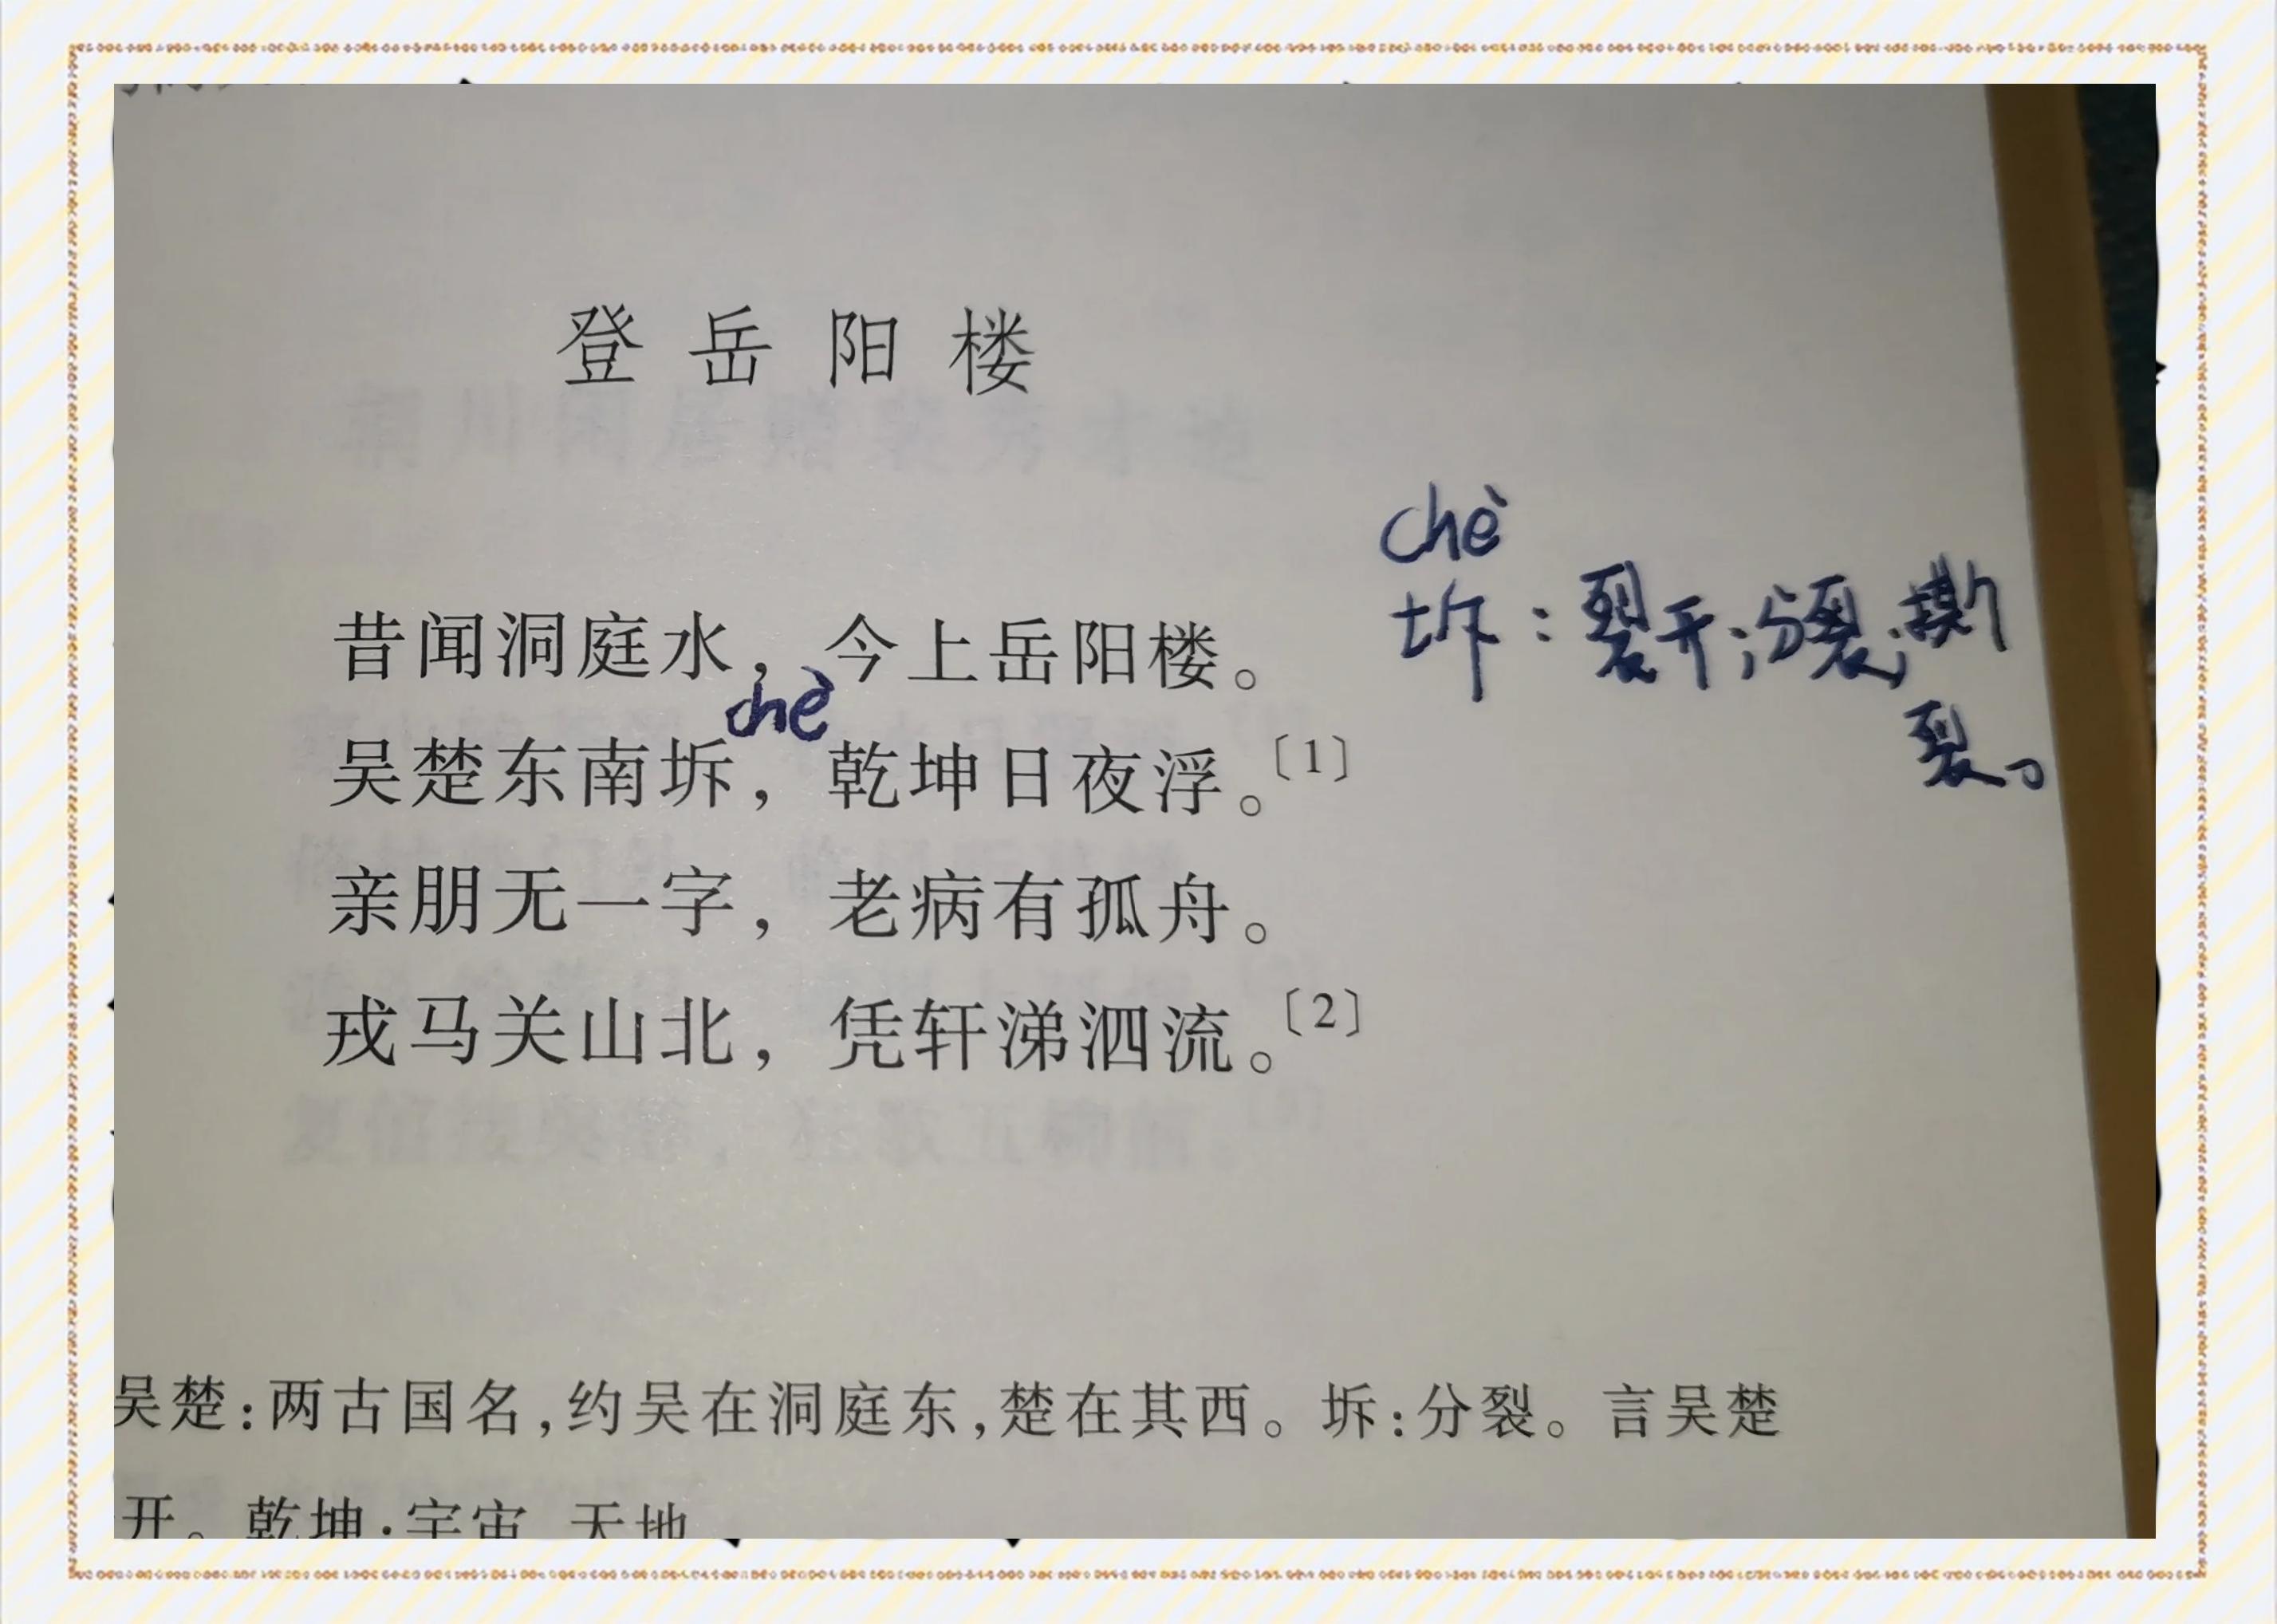 登岳阳楼
chè
坼：裂开；分裂；撕
裂。
昔闻洞庭水，今上岳阳楼。
chè
吴楚东南坼，乾坤日夜浮。〔1〕
亲朋无一字，老病有孤舟。
戎马关山北，凭轩涕泗流。〔2〕
吴楚：两古国名，约吴在洞庭东，楚在其西。坼：分裂。言吴楚
开。乾坤：宇宙 天地